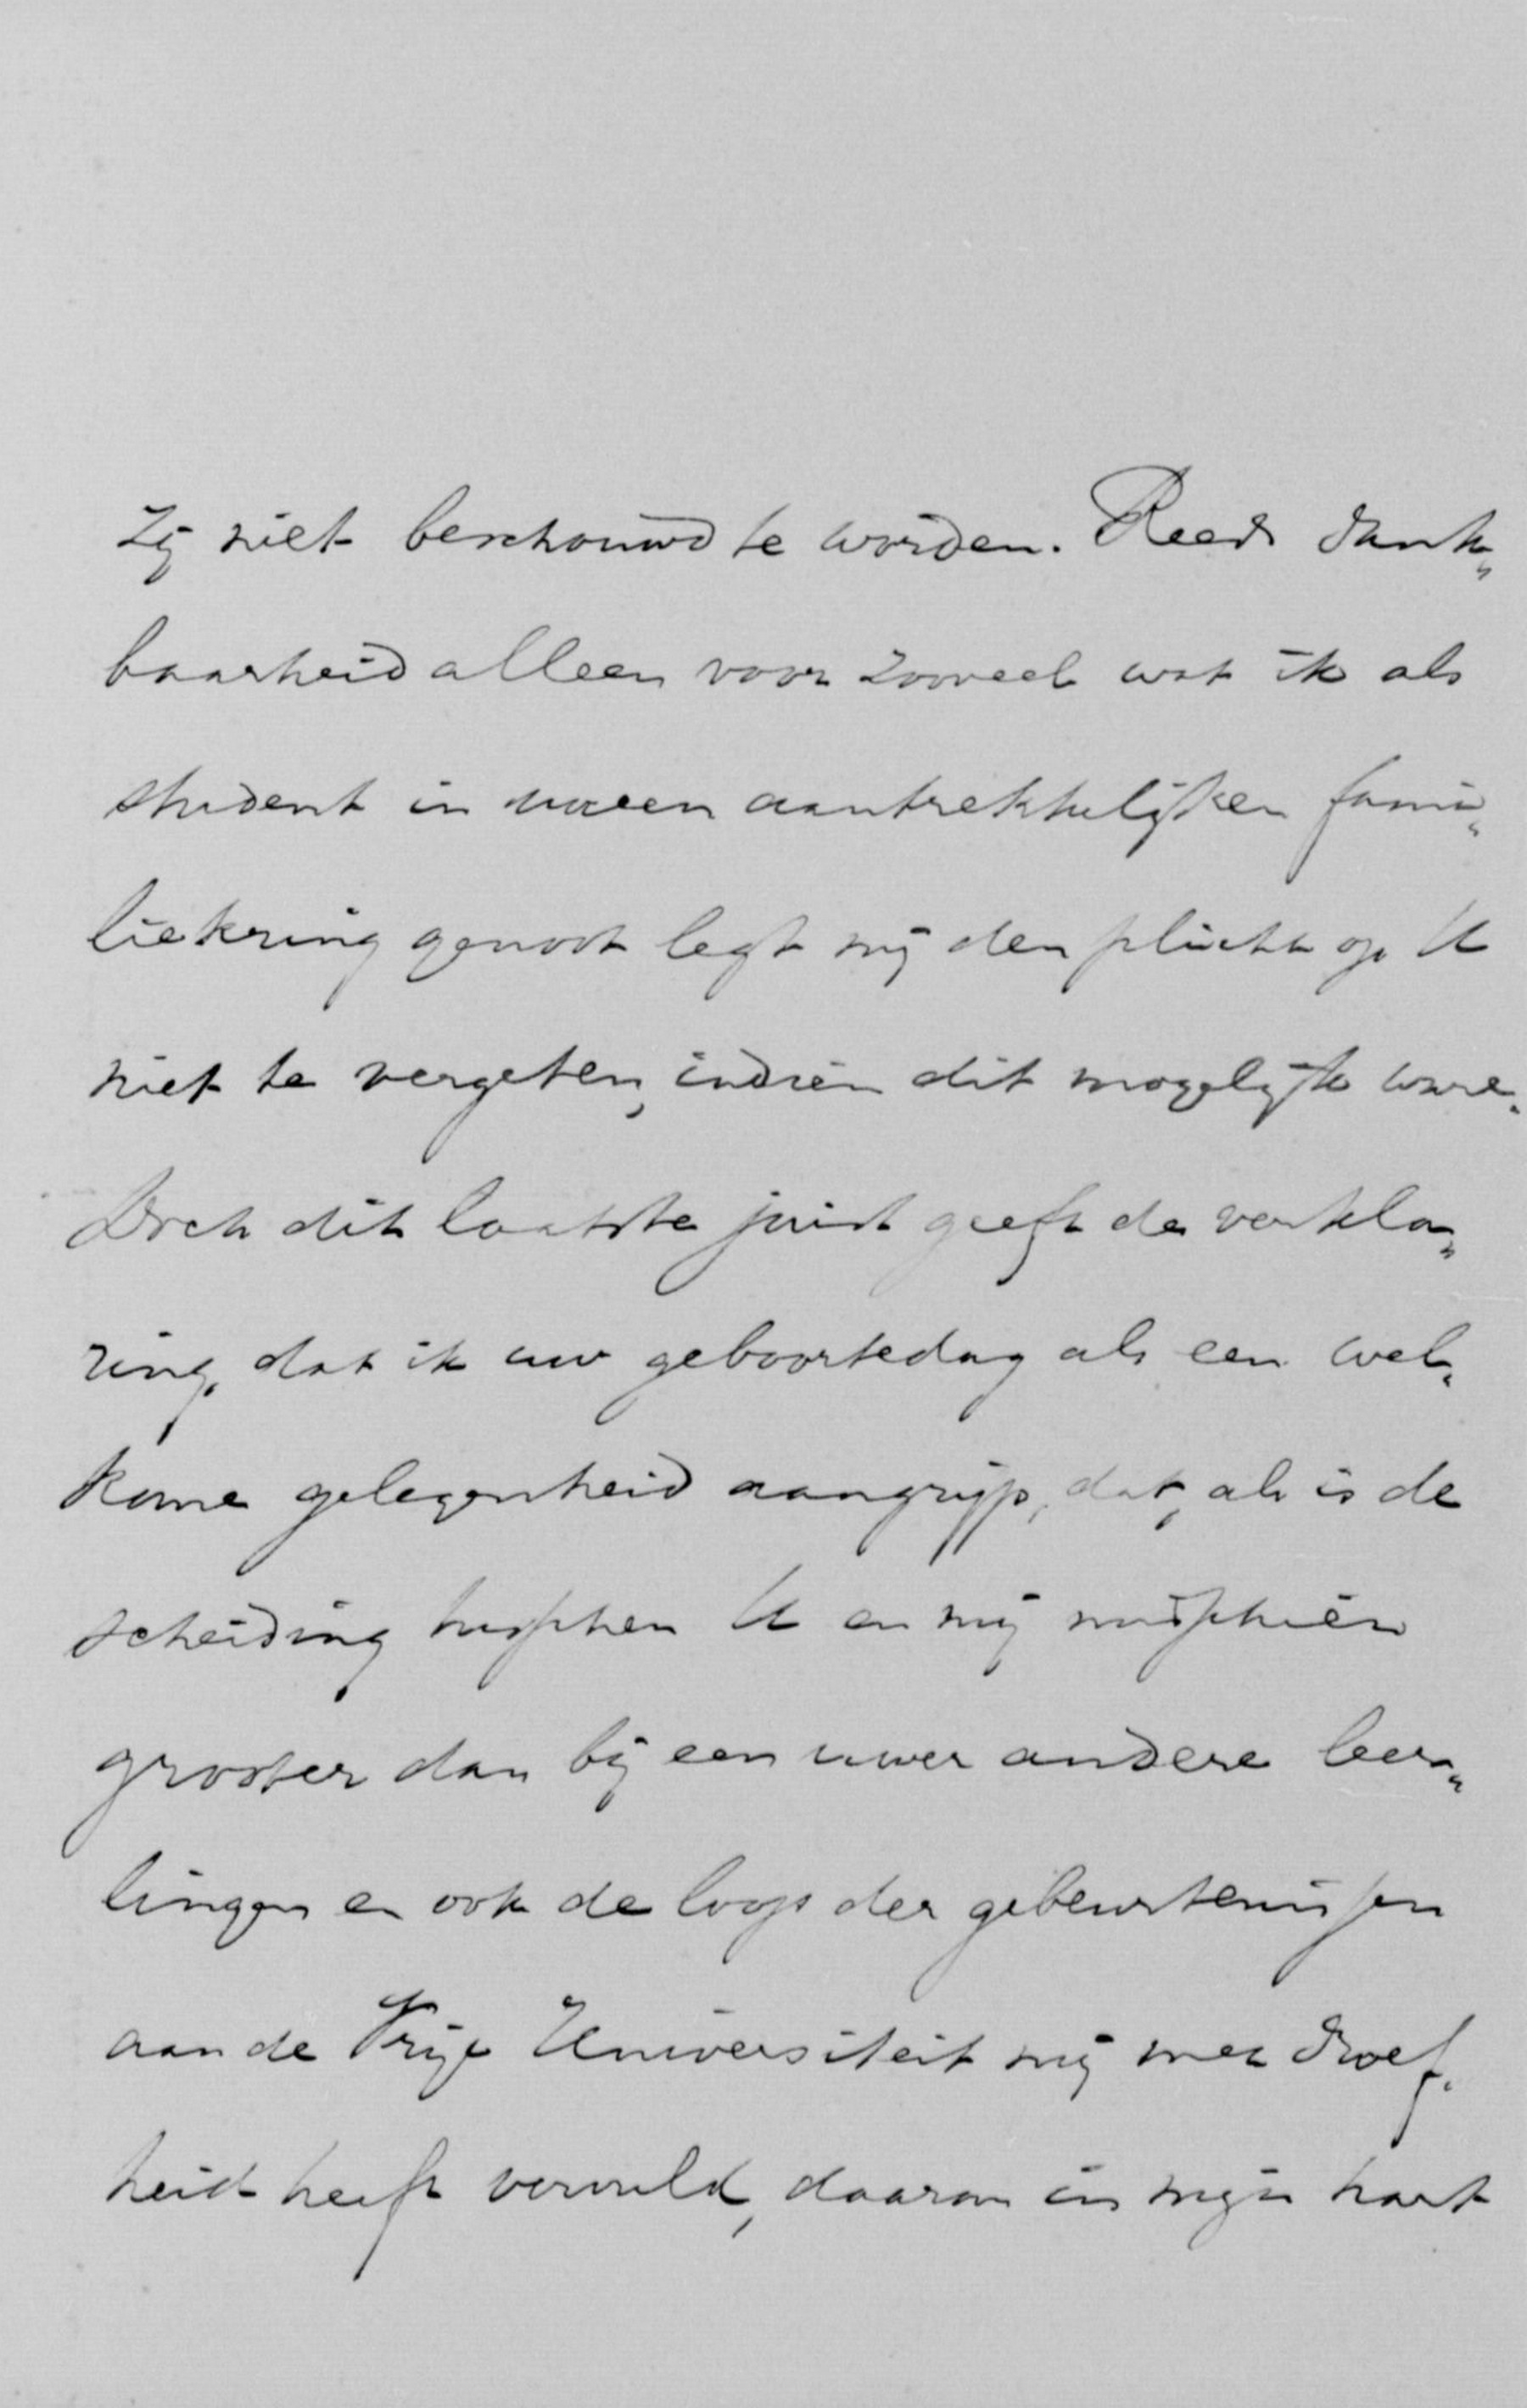 zij niet beschouwd te worden. Reeds dank„
baarheid alleen voor zooveel wat ik als
student in uween aantrekkelijken fami„
liekring genoot legt mij den plicht op U
niet te vergeten, indien dit mogelijk ware.
Doch dit laatste juist geeft de verkla„
ring, dat ik uw geboortedag als een wel„
kome gelegenheid aangrijp, dat, al is de
scheiding tusschen U en mij misschien
grooter dan bij een uwer andere leer„
lingen en ook de loop der gebeurtenissen
aan de Vrije Universiteit mij met droef„
heid heeft vervuld, daarom in mijn hart